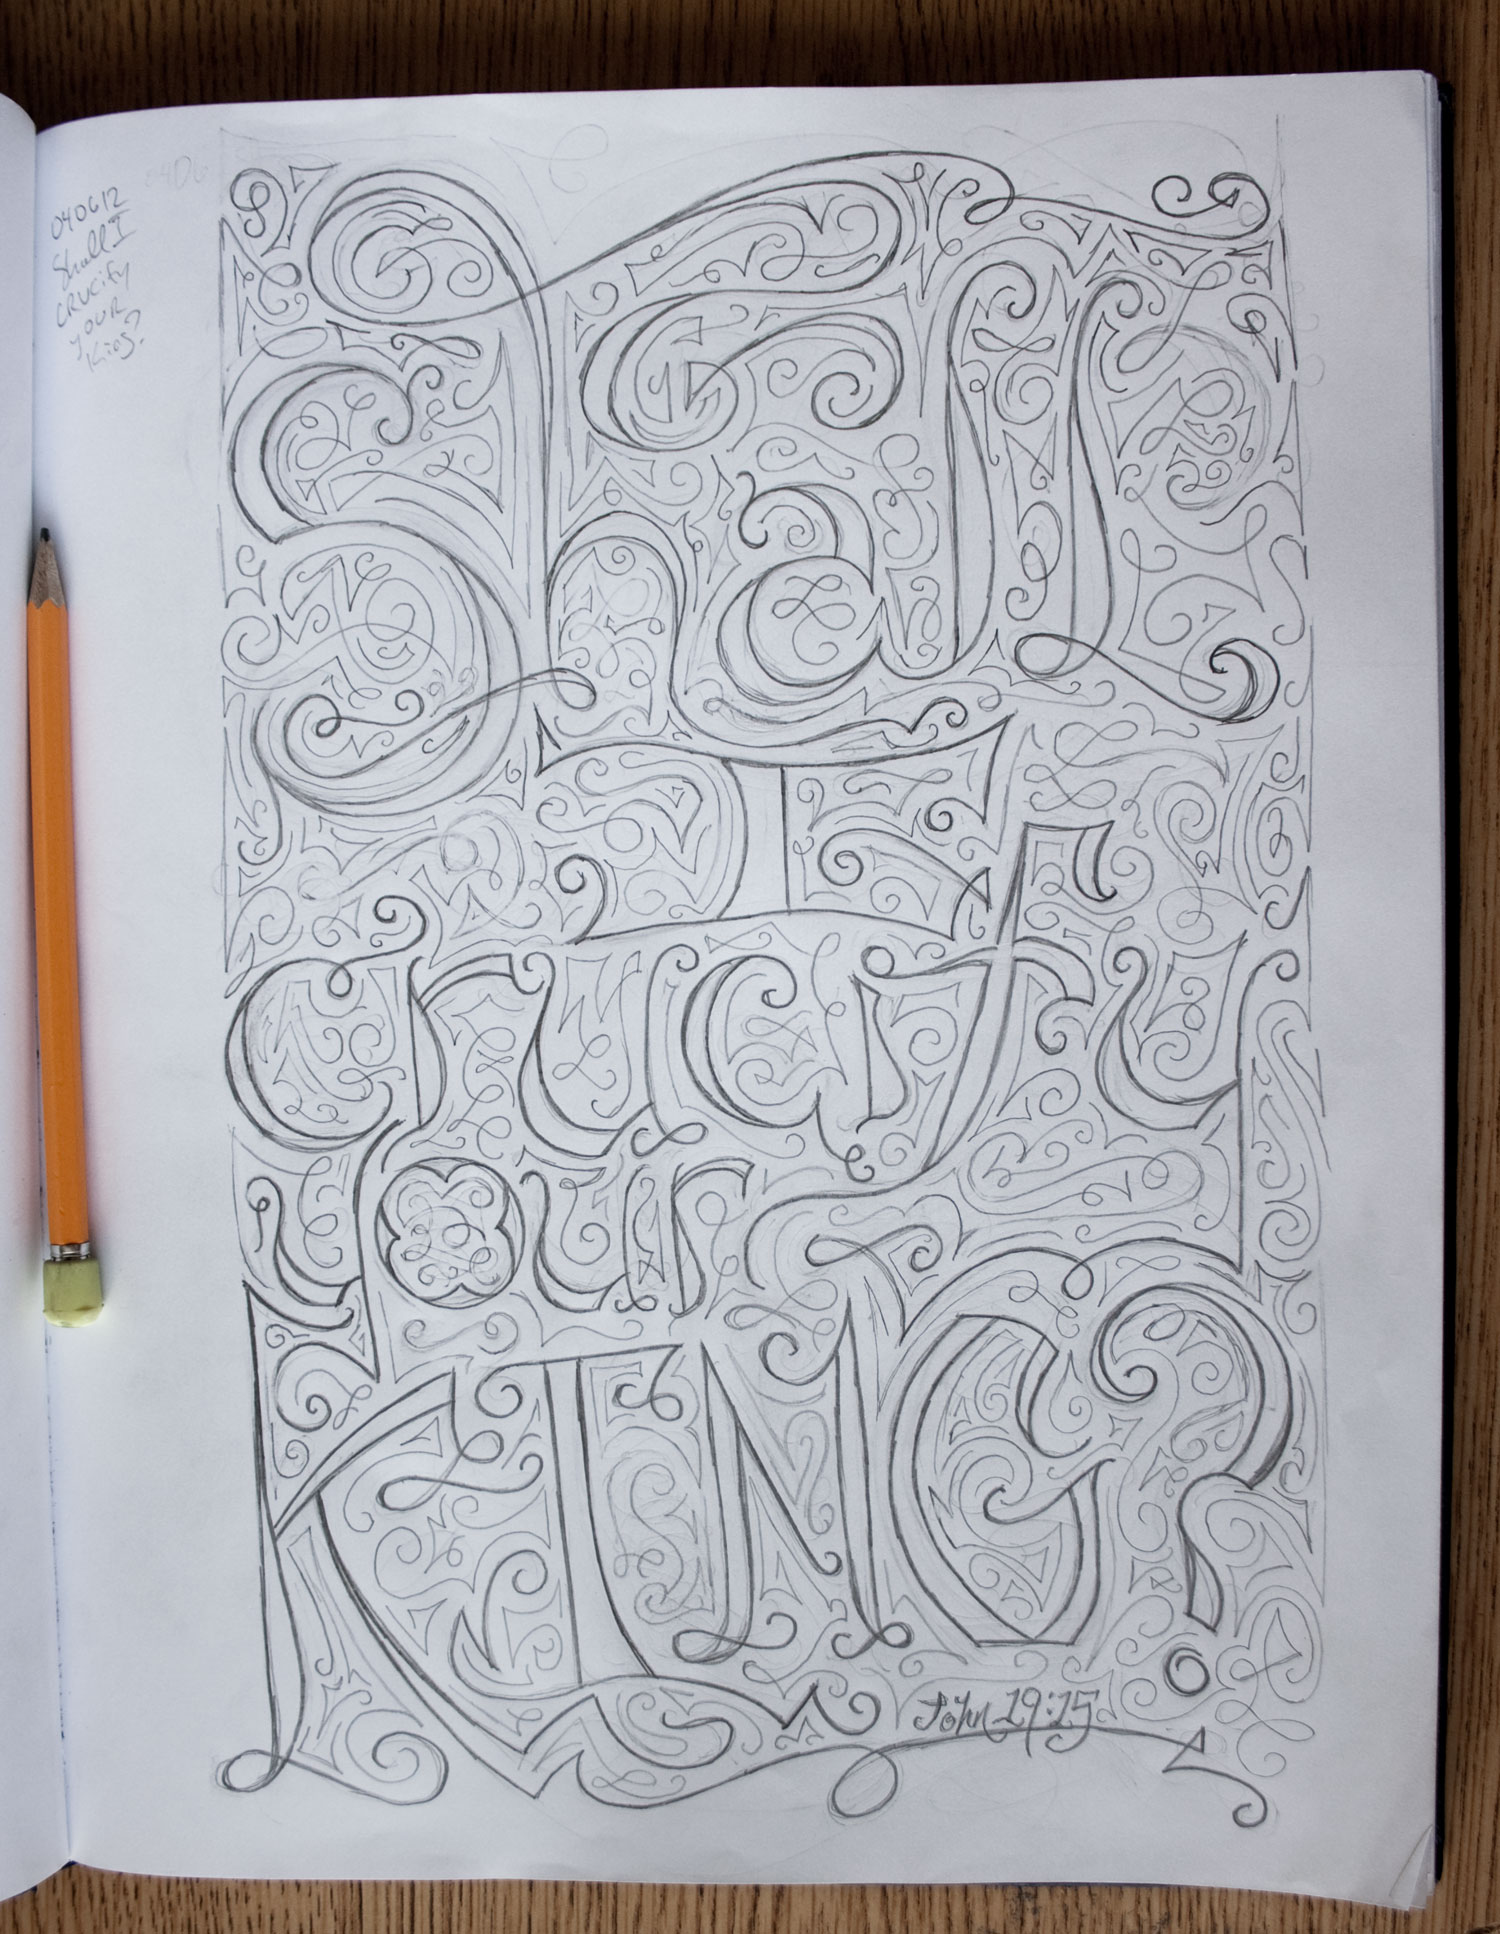 040612
Shall I
CRUCIFY
YOUR
King?
Shall
I
crucify
your
KING?
John 19:15